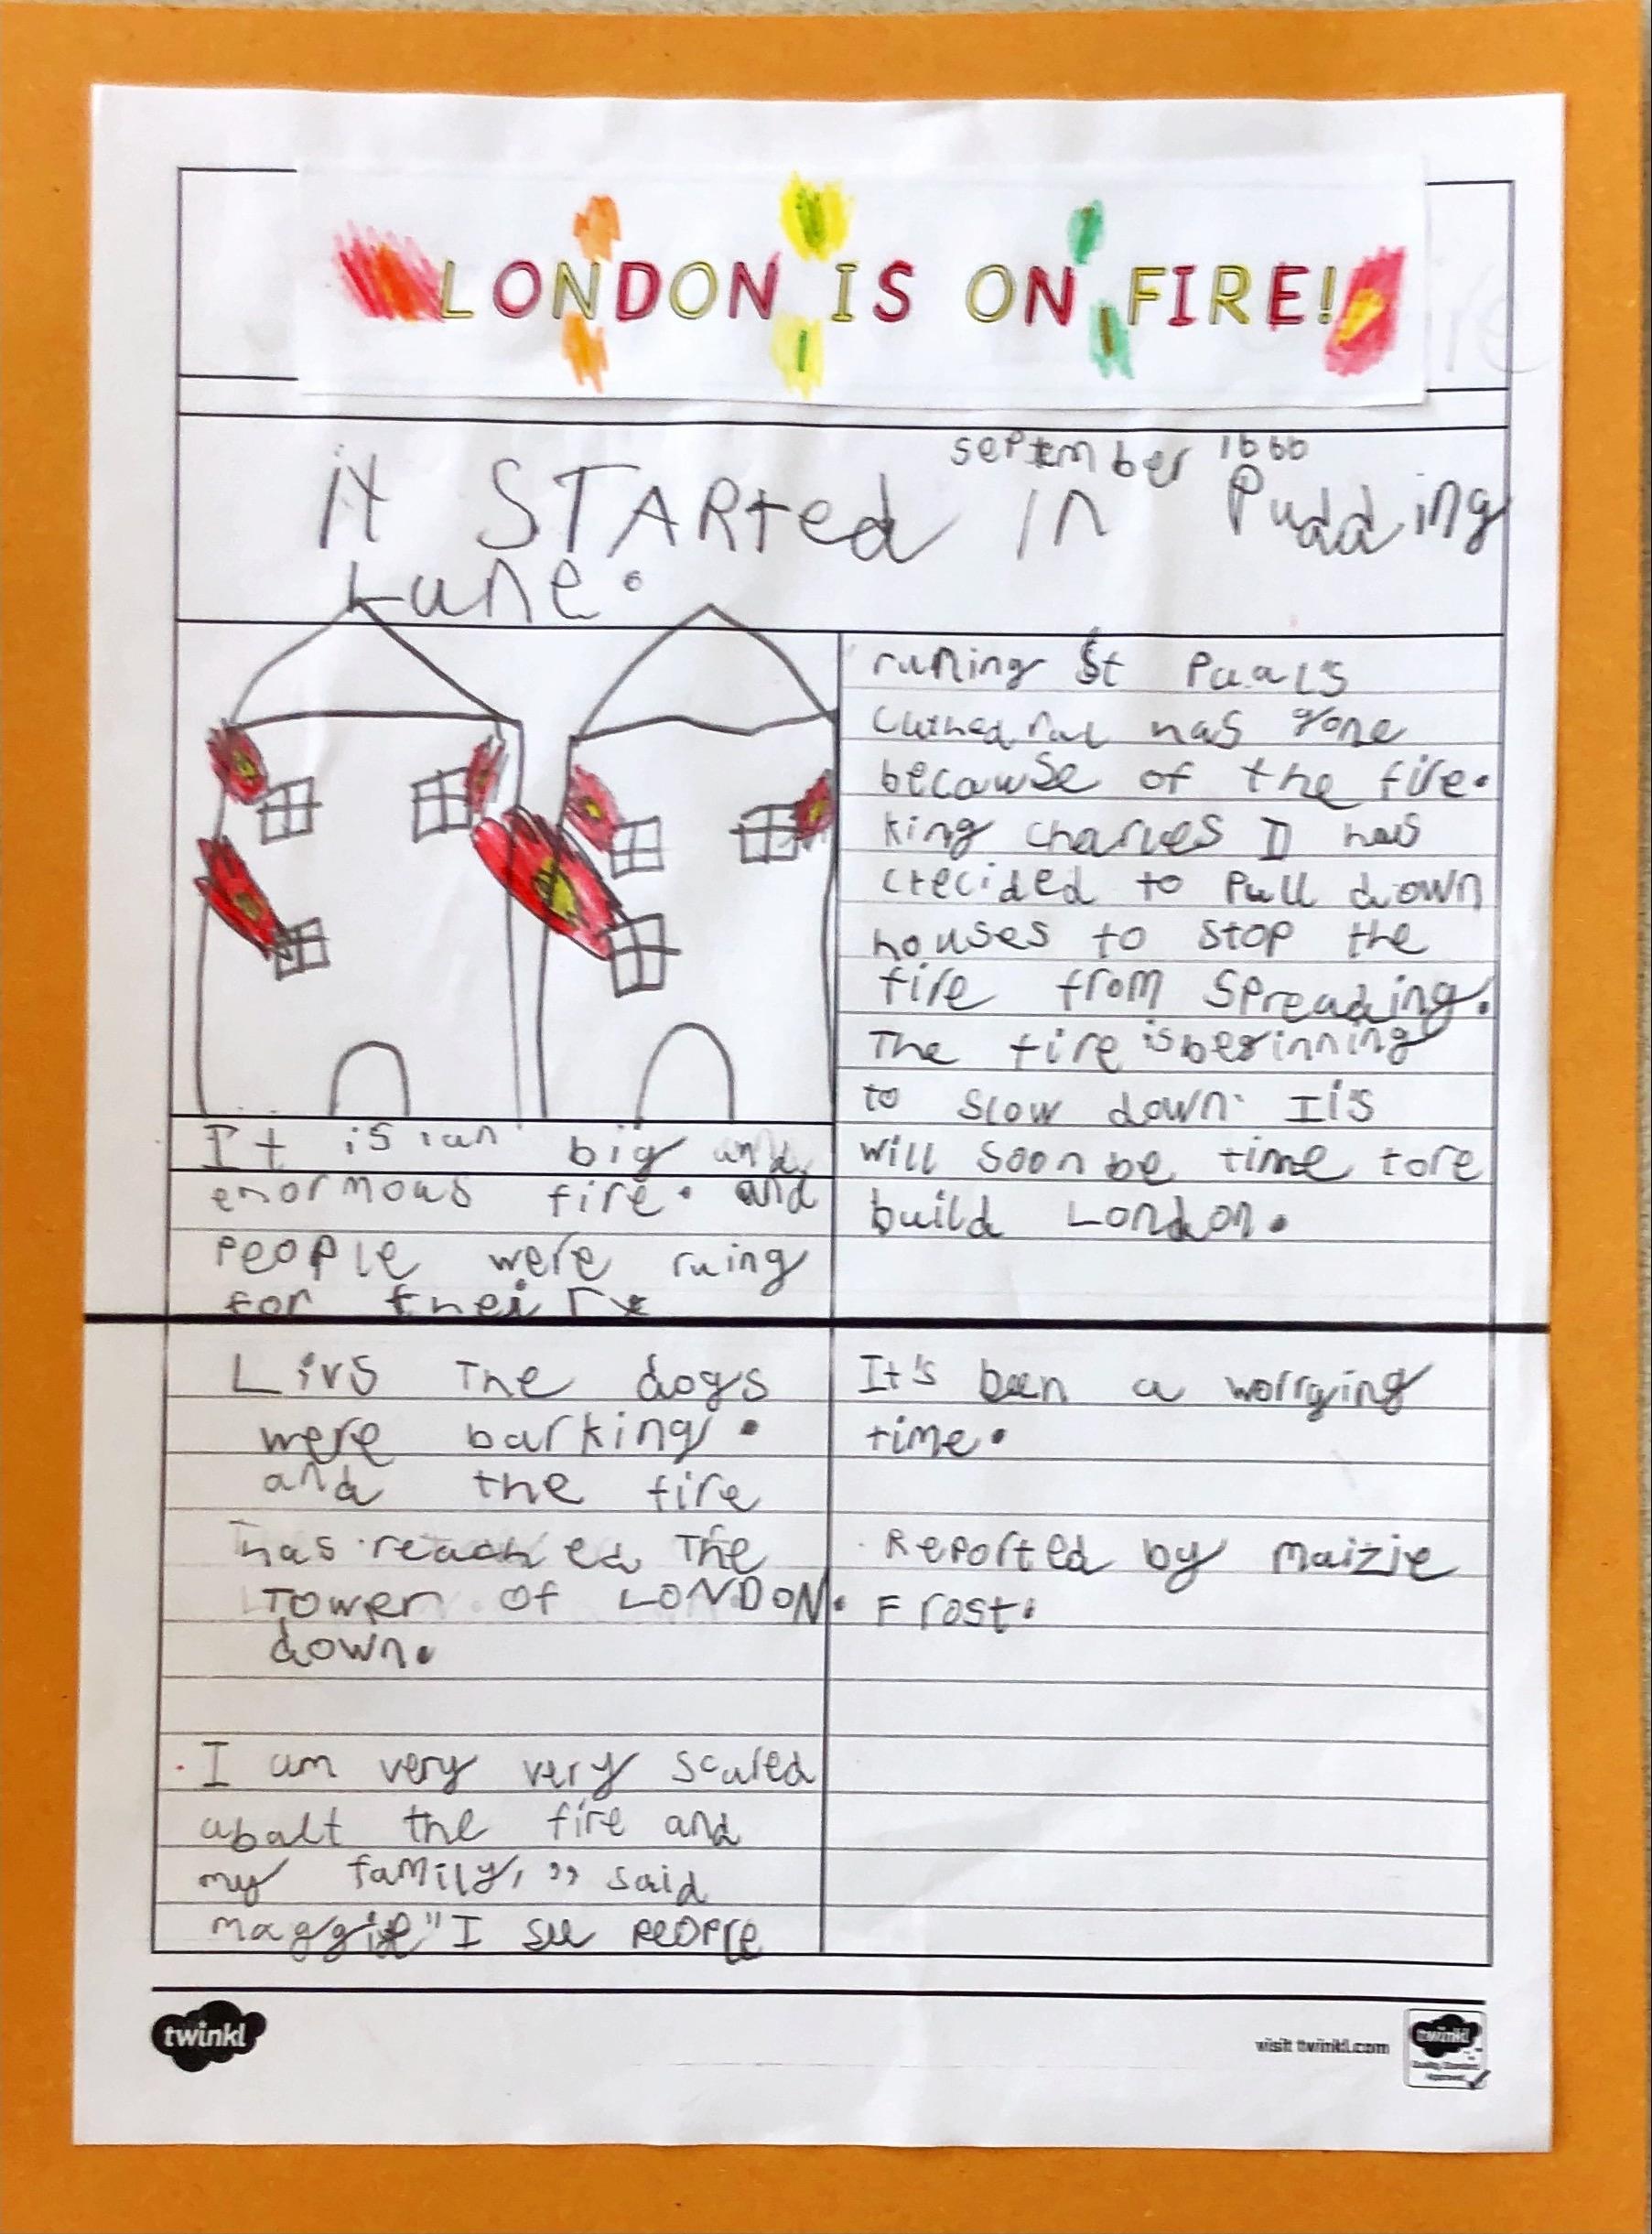 LONDON IS ON FIRE!
september 1666
it STARted in Pudding
Lane.
It is an big and
enormous fire. and
People were ruing
for their
Livs The dogs
were barking.
and the fire
has reached The
Tower of LONDON.
down.
I am very very scared
abalt the fire and
my family," said
maggie "I see people
runing St Paals
Cathedral has gone
because of the fire.
King Charles II has
decided to Pull down
houses to stop the
fire from spreading.
The fire is beginning
to slow down. It's
will soon be time to re
build London.
It's been a worrying
time.
Reported by Maizie
Frost.
twinkl
visit twinkl.com
twinkl
Quality Standard
Approved